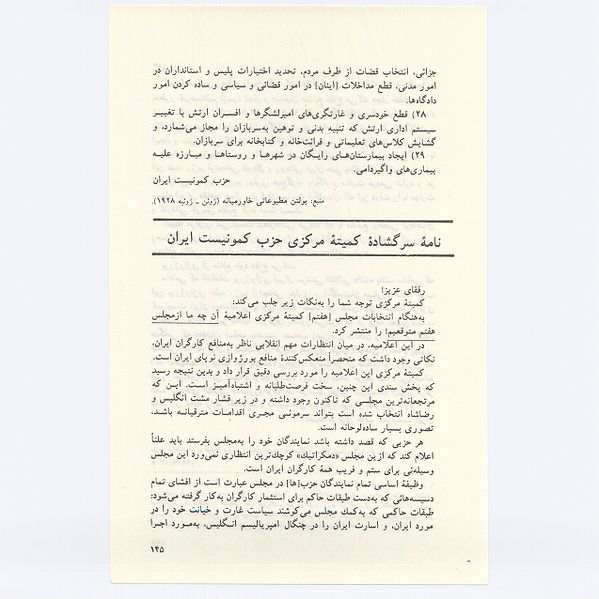 جزائی، انتخاب قضات از طرف مردم، تحدید اختیارات پلیس و استانداران در
امور مدنی، قطع مداخلات [اینان] در امور قضائی و سیاسی و ساده کردن امور
دادگاه‌ها.
۲۸) قطع خودسری و غارتگری‌های امیرلشگرها و افسران ارتش با تغییر
سیستم اداری ارتش که تنبیه بدنی و توهین به‌سربازان را مجاز می‌شمارد، و
گشایش کلاس‌های تعلیماتی و قرائت‌خانه و کتابخانه برای سربازان.
۲۹) ایجاد بیمارستان‌های رایگان در شهرها و روستاها و مبارزه علیه
بیماری‌های واگیردامی.
حزب کمونیست ایران
منبع: بولتن مطبوعاتی خاورمیانه (ژوئن ـ ژوئیه ۱۹۲۸).
نامهٔ سرگشادهٔ کمیتهٔ مرکزی حزب کمونیست ایران
رفقای عزیز!
کمیتهٔ مرکزی توجه شما را به‌نکات زیر جلب می‌کند:
به‌هنگام انتخابات مجلس [هفتم] کمیتهٔ مرکزی اعلامیهٔ آن چه ما ازمجلس
هفتم متوقعیم! را منتشر کرد.
در این اعلامیه، در میان انتظارات مهم انقلابی ناظر به‌منافع کارگران ایران،
نکاتی وجود داشت که منحصراً منعکس‌کنندهٔ منافع بورژوازی نوپای ایران است.
کمیتهٔ مرکزی این اعلامیه را مورد بررسی دقیق قرار داد و بدین نتیجه رسید
که پخش سندی این چنین، سخت فرصت‌طلبانه و اشتباه‌آمیز است. این که
مرتجعانه‌ترین مجلسی که تاکنون وجود داشته و در زیر فشار مشت انگلیس و
رضاشاه انتخاب شده است بتواند سرموئی مجری اقدامات مترقیانه باشد،
تصوری بسیار ساده‌لوحانه است.
هر حزبی که قصد داشته باشد نمایندگان خود را به‌مجلس بفرستد باید علناً
اعلام کند که ازین مجلس «دمکراتیك» کوچك‌ترین انتظاری نمی‌رود این مجلس
وسیله‌ئی برای ستم و فریب همهٔ کارگران ایران است.
وظیفهٔ اساسی تمام نمایندگان حزب[ها] در مجلس عبارت است از افشای تمام
دسیسه‌هائی که به‌دست طبقات حاکم برای استثمار کارگران به‌کار گرفته می‌شود:
طبقات حاکمی که به‌کمك مجلس می‌کوشند سیاست غارت و خیانت خود را در
مورد ایران، و اسارت ایران را در چنگال امپریالیسم انگلیس، به‌مورد اجرا
۱۴۵